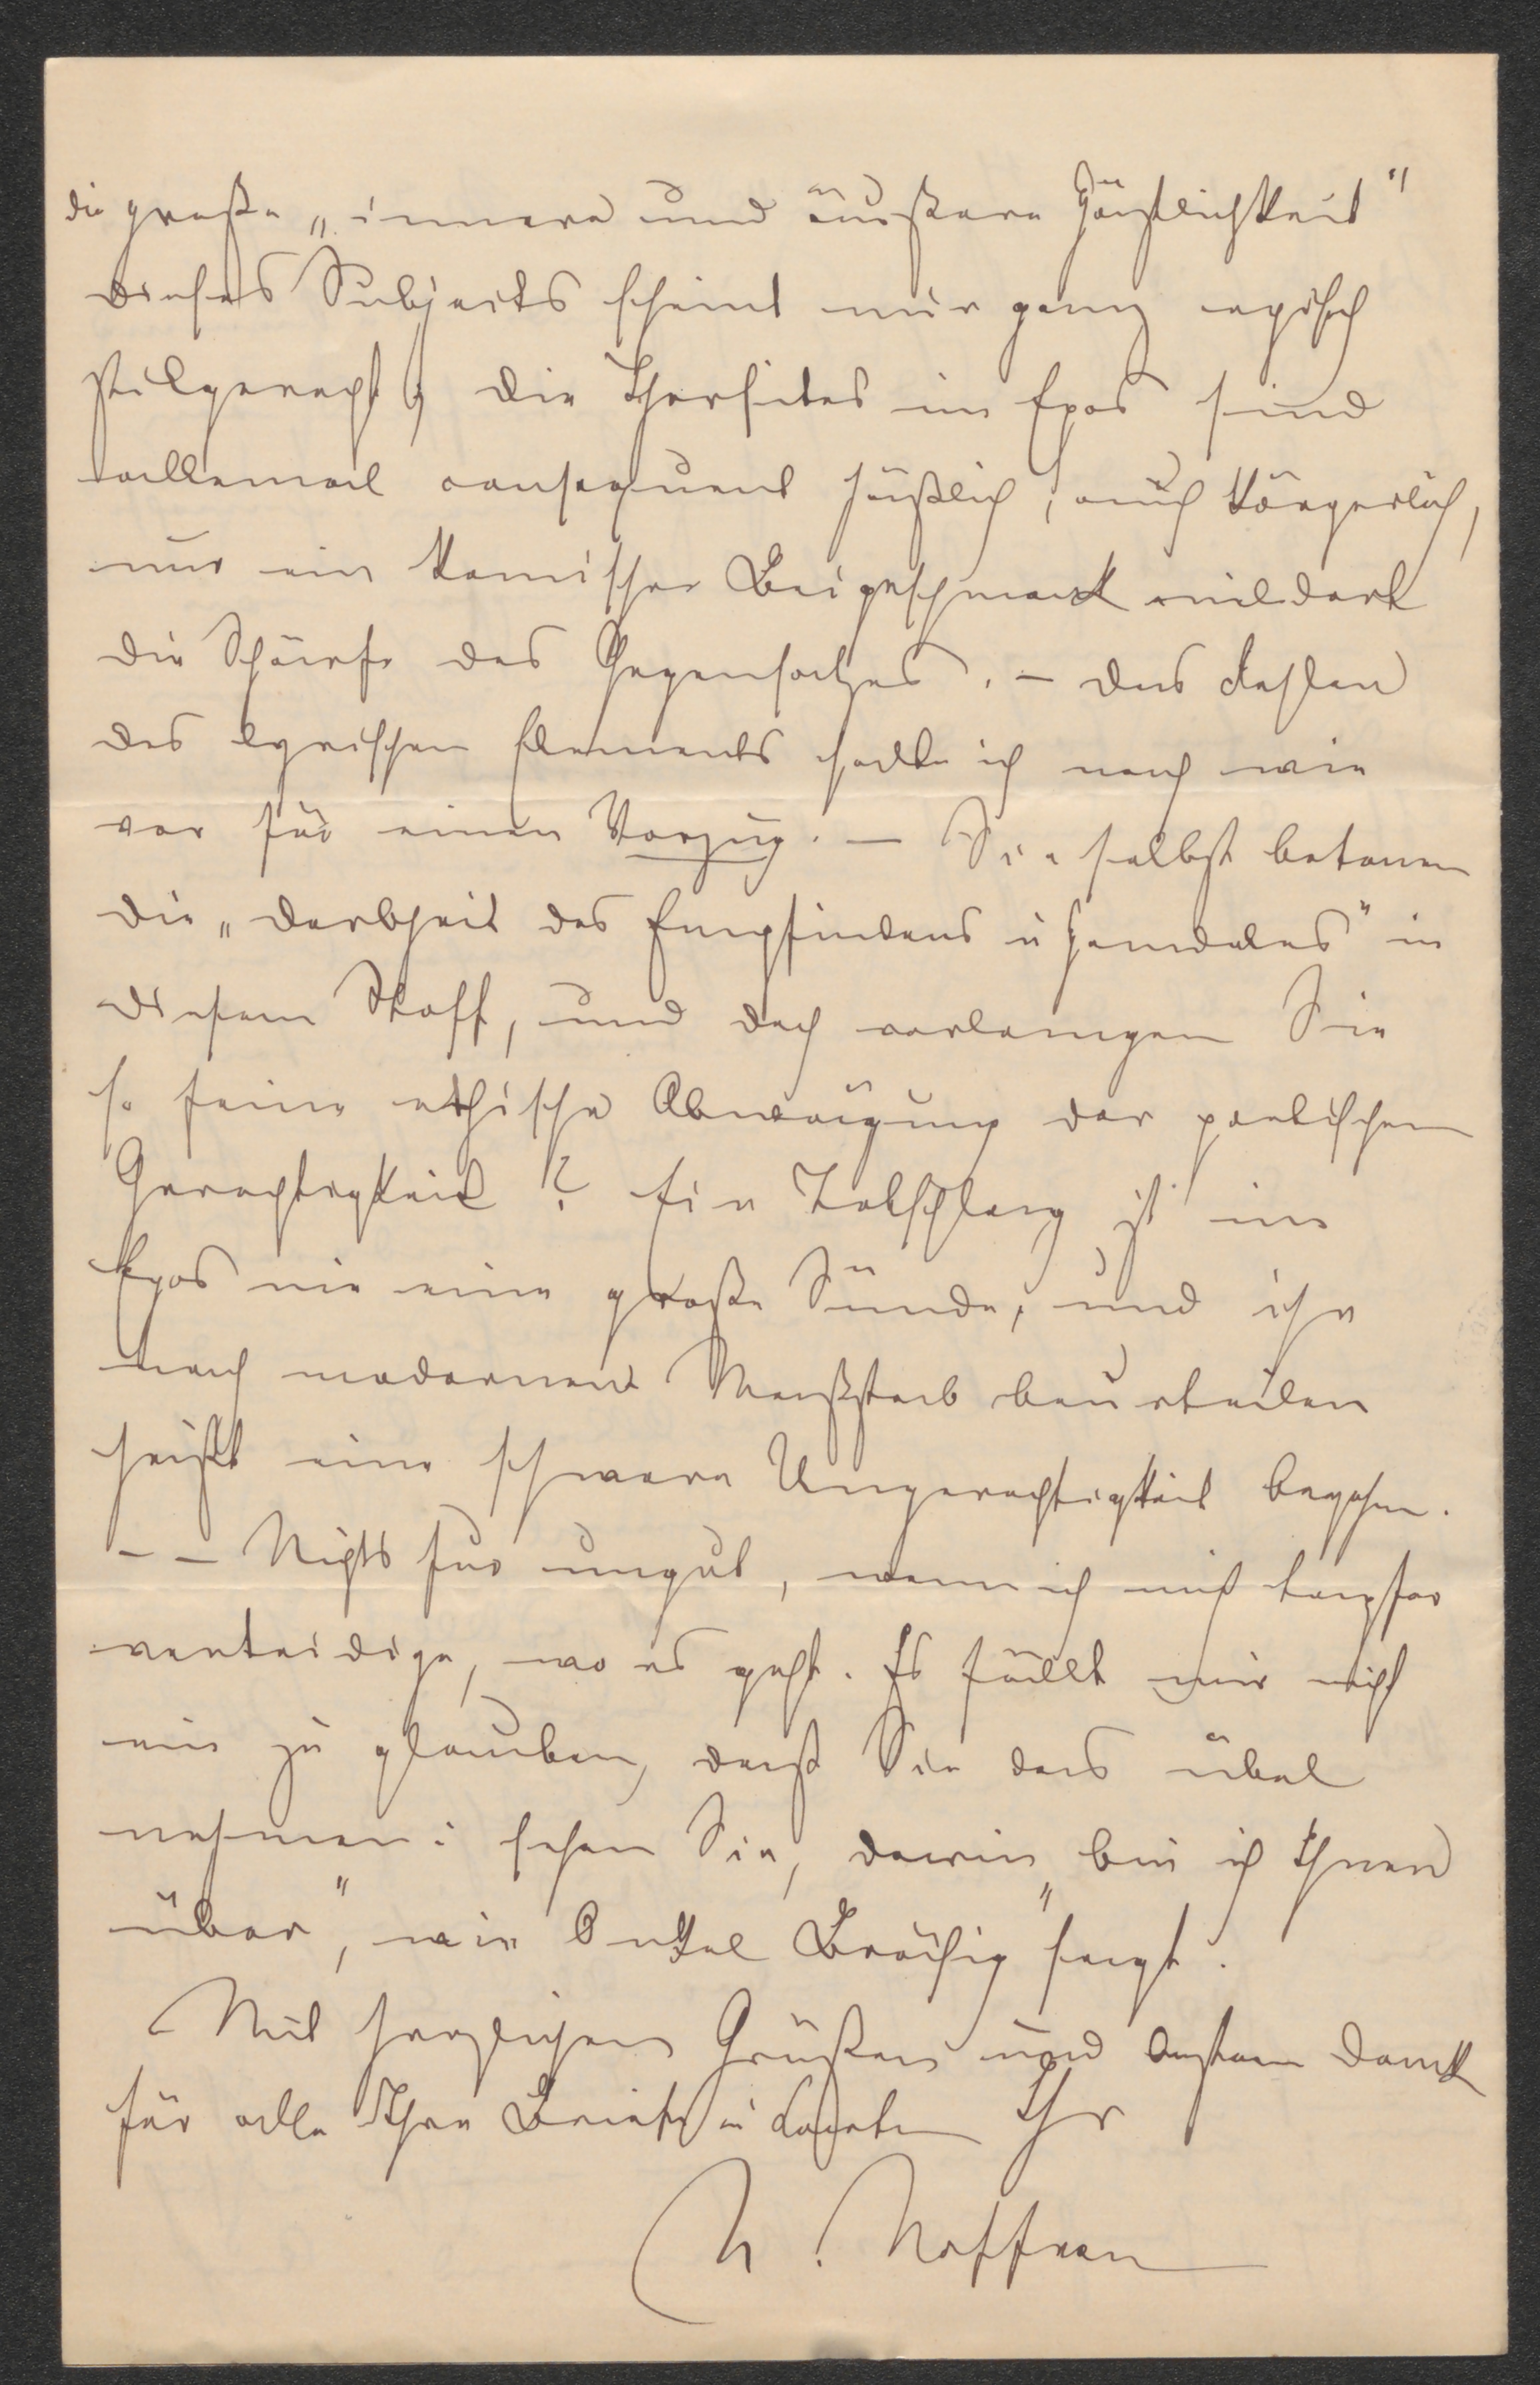 die große „innere und äußere Häßlichkeit"
dieses Subjects scheint mir ganz episch
stilgerecht; die Thersites im Epos sind
allemal consequent häßlich, auch körperlich,
nur ein komischer Beigeschmack mildert
die Schärfe des Gegensatzes. – Das Fehlen
des lyrischen Elements halte ich nach wie
vor für einen Vorzug. – Sie selbst betonen
die „Derbheit des Empfindens u Handelns" in
diesem Stoff, und doch verlangen Sie
so feine ethische Abwägung der poetischen
Gerechtigkeit? Ein Totschlag ist im
Epos nie eine große Sünde, und ihn
nach modernem Maßstab beurteilen
heißt eine schwere Ungerechtigkeit begehen.
– – Nichts für ungut, wenn ich mich tapfer
verteidige, wo es geht. Es fällt mir nicht
ein zu glauben, daß Sie das übel
nehmen: sehen Sie, darin „bin ich Ihnen
über", wie Onkel Bräsig sagt.
Mit herzlichen Grüßen und bestem Dank
für alle Ihre Briefe u Karten Ihr